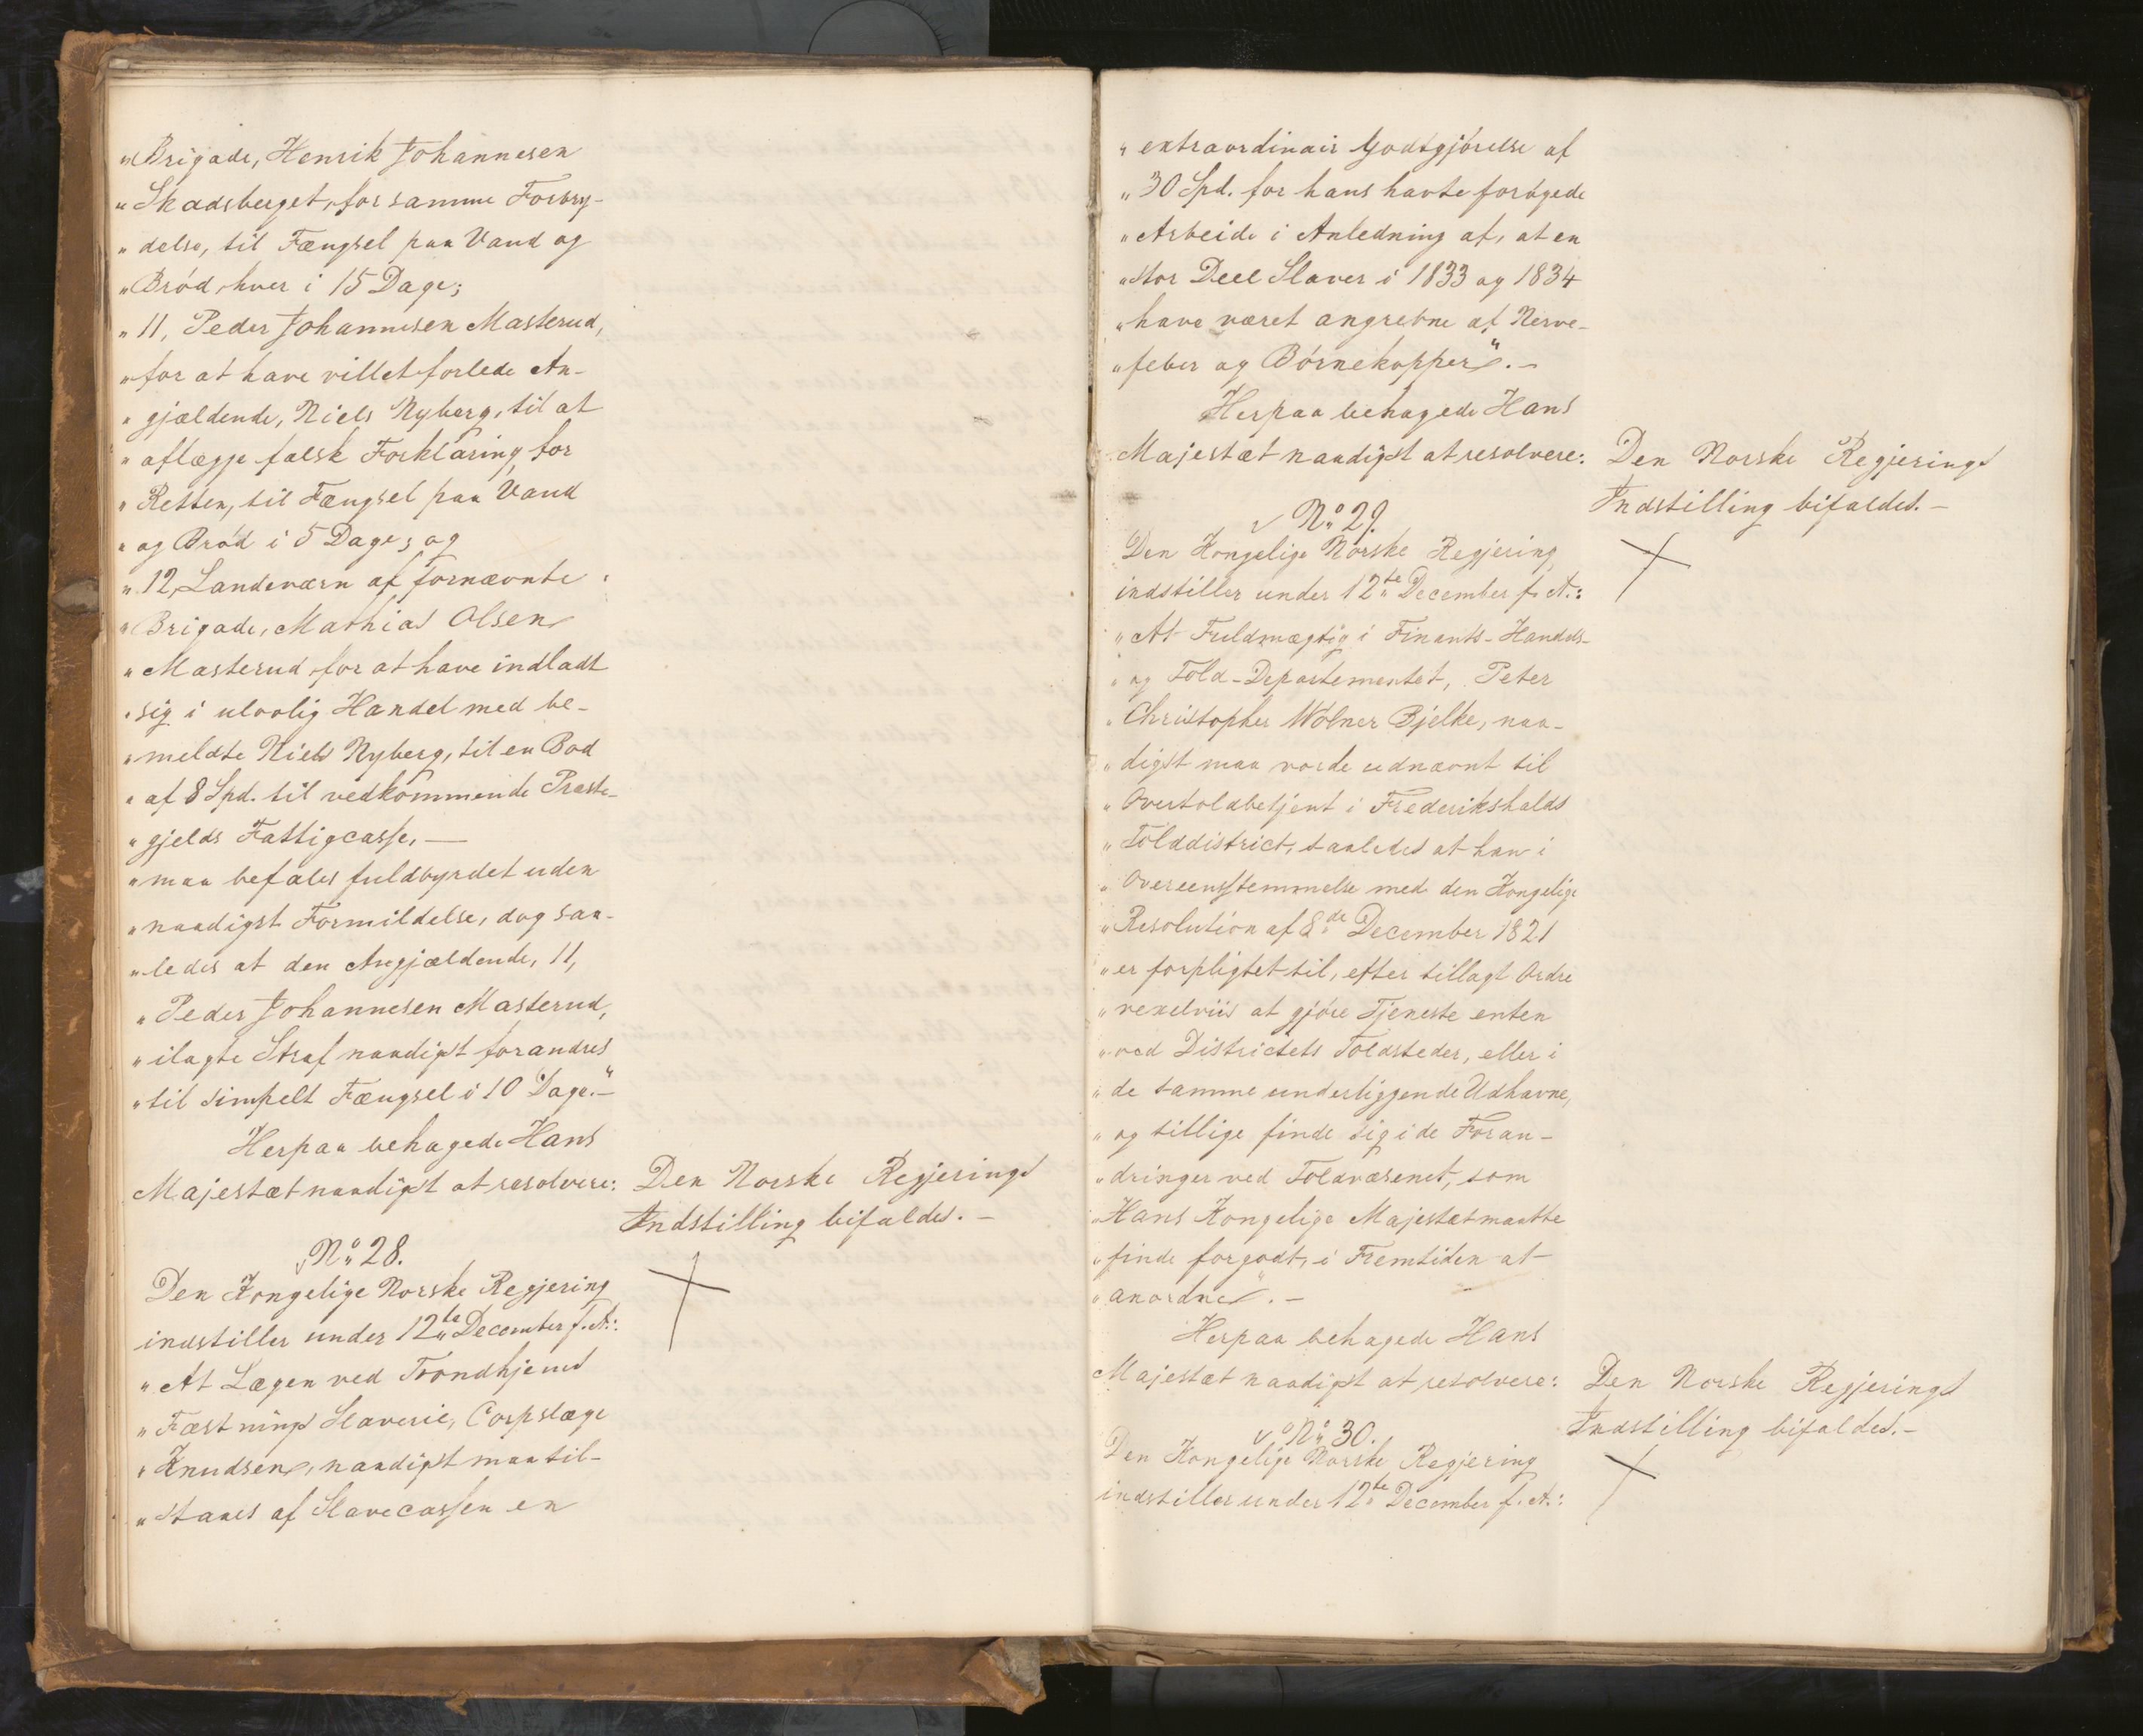 "Brigade, Henrik Johannesen
"Skadsberget, for samme Forbry-
"delse, til Fængsel paa Vand og
"Bród, hver i 15 Dage;
"11, Peder Johannesen Masterud,
"for at have villet forlede An-
"gjældende, Niels Nyberg, til at
"aflægge falsk Forklaring for
"Retten, til Fængsel paa Vand
"og Bród i 5 Dage; og
"12, Landeværn af fornævnte
"Brigade, Mathias Olsen
"Masterud, for at have indladt
"sig i ulovlig Handel med be-
"meldte Niels Nyberg, til en Bod
"af 8 Spd. til vedkommende Præste-
"gjelds Fattigcasse, —
"maa befales fuldbyrdet uden
"naadigst Formildelse, dog saa-
"ledes at den Angjældende, 11,
"Peder Johannesen Masterud,
"ilagte Straf naadigst forandres
"til simpelt Fængsel i 10 Dage."-
Herpaa behagede Hans
Majestæt naadigst at resolvere:
Den Norske Regjerings
Indstilling bifaldes. -
No 28.
Den Kongelige Norske Regjering
indstiller under 12te December f. A.:
"At Lægen ved Trondhjems
"Fæstnings Slaverie, Corpslæge
"Knudsen, naadigst maa til-
"staaes af Slavecassen en
"extraordinair Godtgjórelse af
"30 Spd. for hans havte forógede
"Arbeide i Anledning af, at en
"stor Deel Slaver i 1833 og 1834
"have været angrebne af Nerve-
"feber og Bórnekopper". -
Herpaa behagede Hans
Majestæt naadigst at resolvere:
Den Norske Regjerings
Indstilling bifaldes. -
No 29.
Den Kongelige Norske Regjering
indstiller under 12te December f. A.:
"At Fuldmægtig i Finants- Handels-
"og Told-Departementet, Peter
"Christopher Wólner Bjelke, naa-
"digst maa vorde udnævnt til
"Overtoldbetjent i Frederikshalds
"Tolddistrict, saaledes at han i
"Overeensstemmelse med den Kongelige
"Resolution af 8de December 1821
"er forpligtet til, efter tillagt Ordre
"vexelviis at gjóre Tjeneste enten
"ved Districtets Toldsteder, eller i
"de samme underliggende Udhavne,
"og tillige finde sig i de Foran-
"dringer ved Toldvæsenet, som
"Hans Kongelige Majestæt maatte
"finde forgodt, i Fremtiden at
"anordne". -
Herpaa behagede Hans
Majestæt naadigst at resolvere:
Den Norske Regjerings
Indstilling bifaldes. -
No 30.
Den Kongelige Norske Regjering
indstiller under 12te December f. A.: